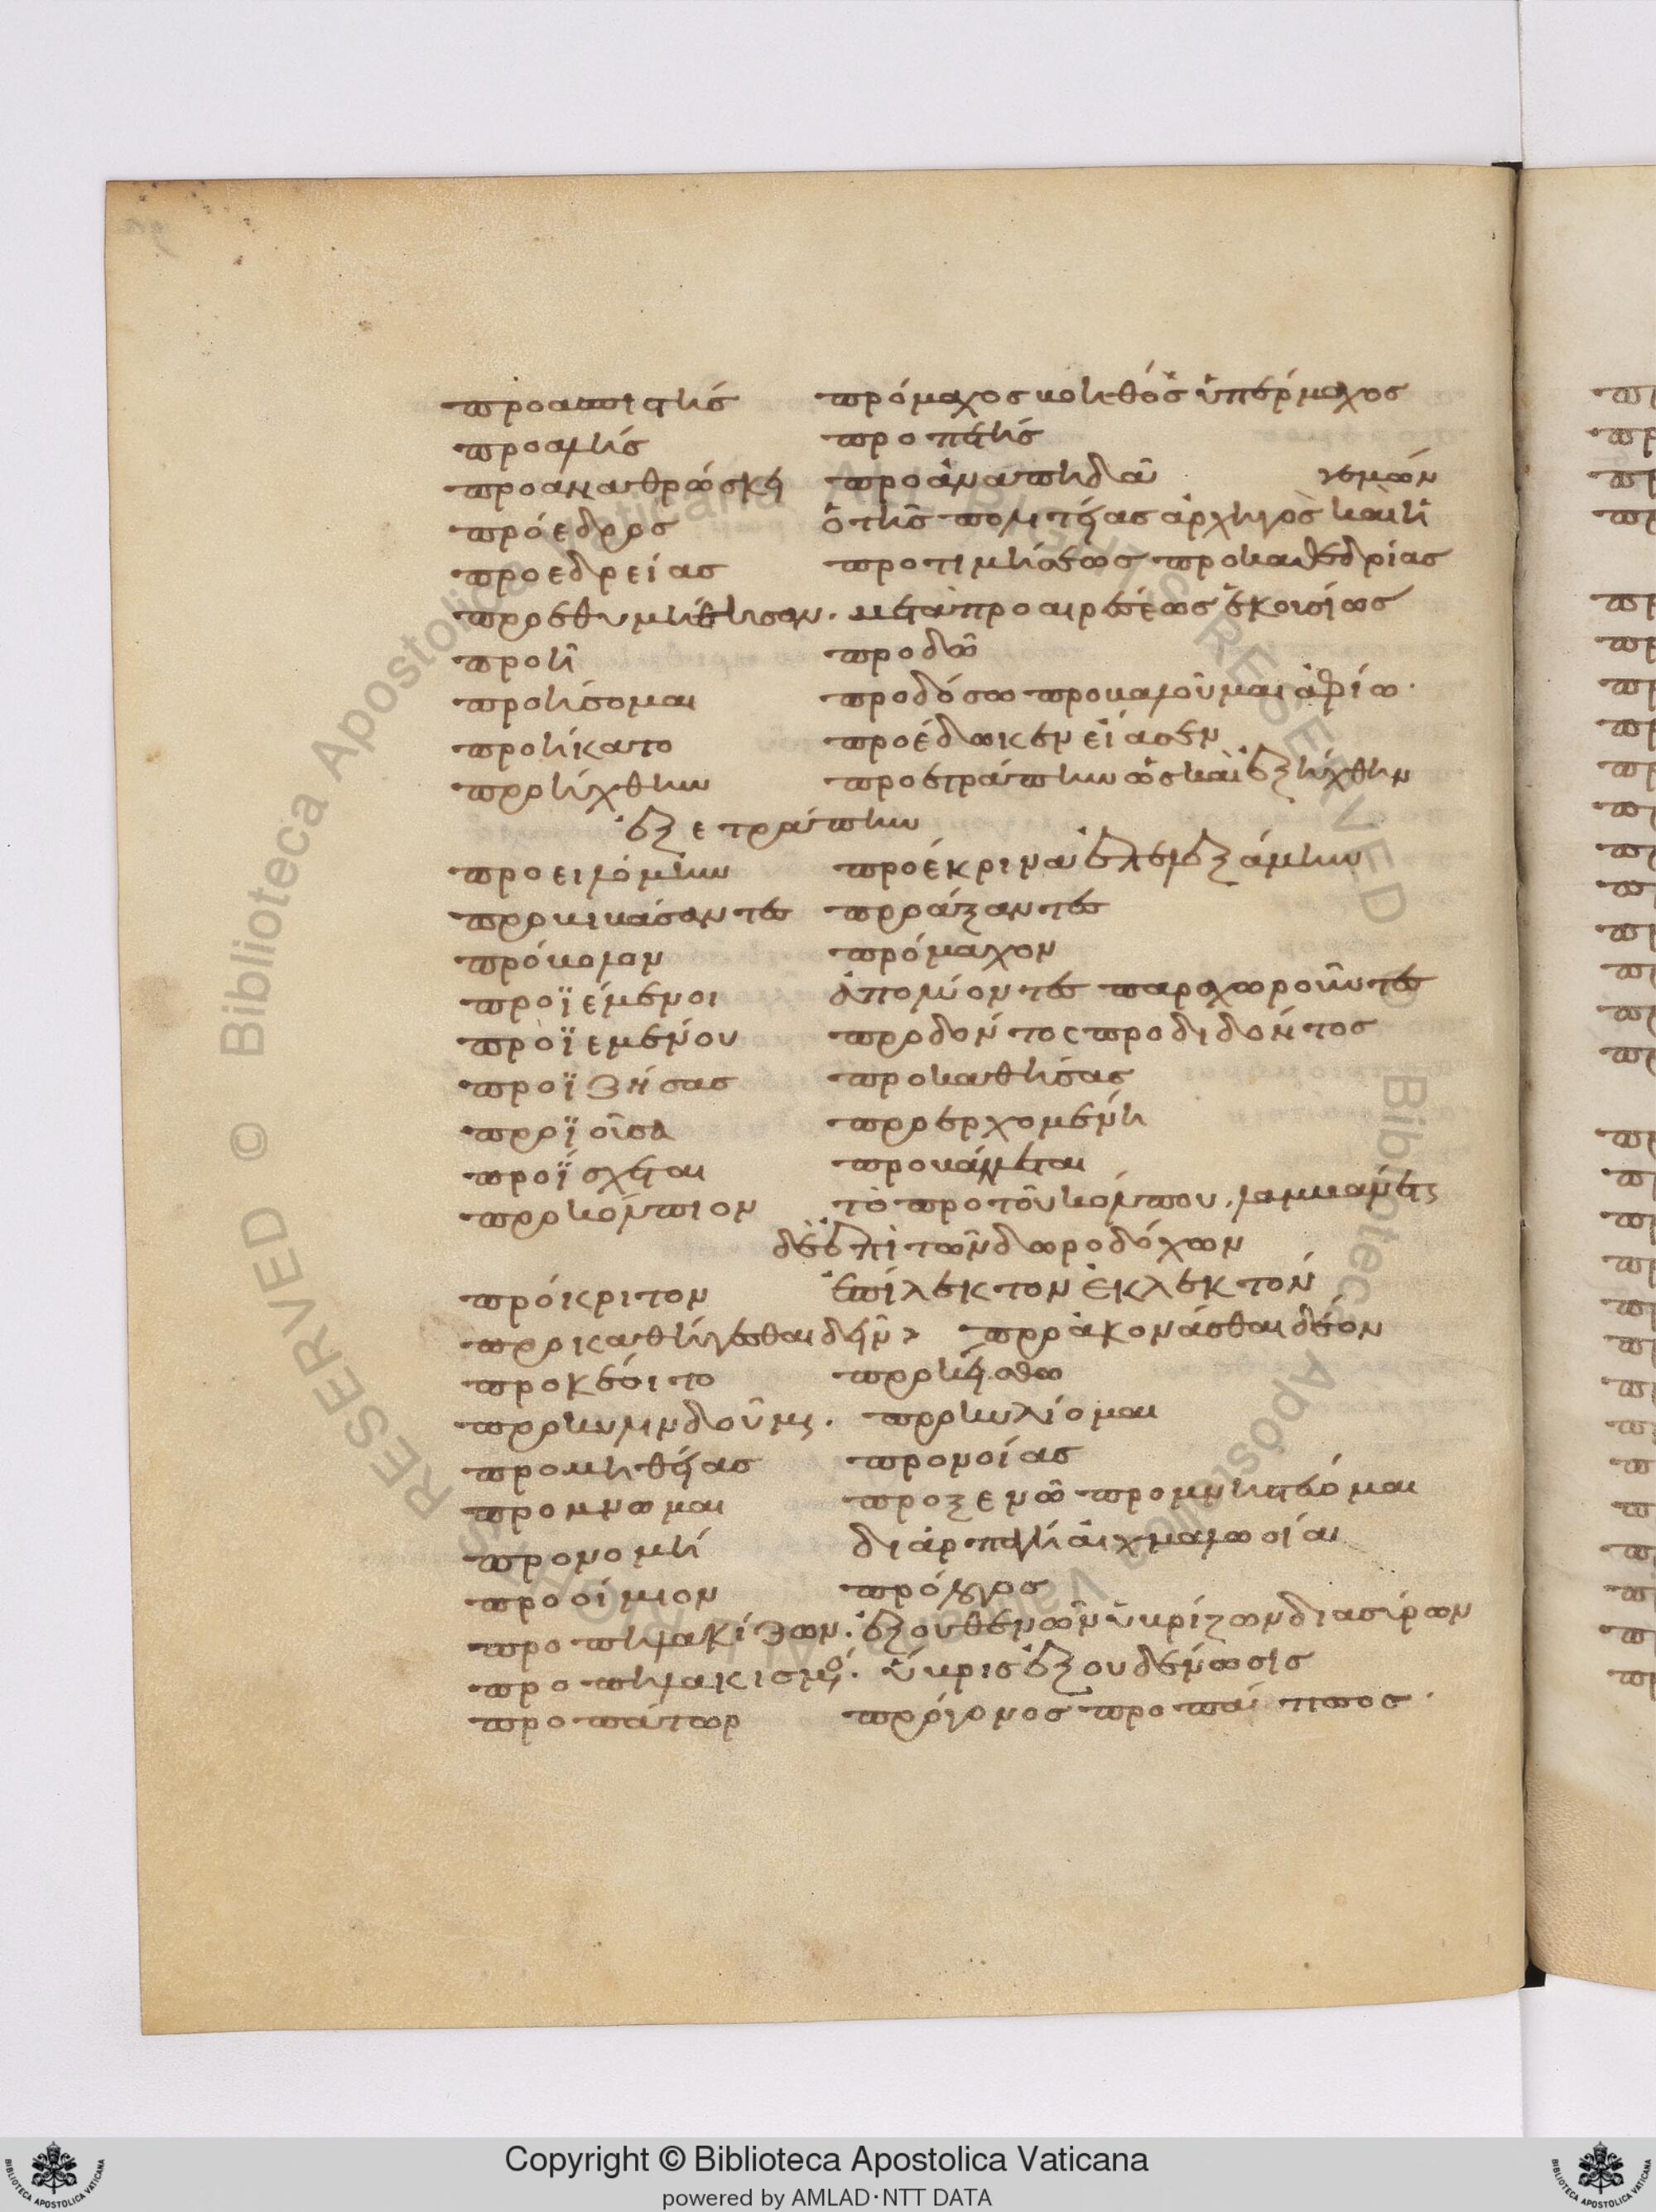 προασπιστής πρόμαχος βοηθός ὑπέρμαχος
προαλής προπετής
προαναθρώσκει προἀναπηδᾶ
γεμών
πρόεδρος ὁ τῆς πολιτείας ἀρχηγὸς καὶ ἡ
προεδρείας προτιμήσεως προκαθεδρίας
προεθυμήθησαν. μετὰ προαιρέσεως ἑκουσίως
προῆ προδῶ
προήσομαι προδόσω προκαλοῦμαι ἀφίω.
προήκατο προέδωκεν εἴασεν
προήχθην προετράπην ὡς καὶ ἐξήχθην
ἐξετράπην
προειλόμην προέκρινα ἐπελεξάμην
προβιβάσαντες προάξαντες
πρόβολον πρόμαχον
προϊέμενοι ἀπολύοντες παραχωροῦντες
προϊεμένου προδόντος προδιδόντος
προϊζήσας προκαθήσας
προϊοῦσα προερχομένη
προΐσχεται προβάλλεται
προκόλπιον τὸ πρὸ τοῦ κόλπου. λαμβάνεται
δὲ ἐπὶ τῶν δωροδόχων
πρόκριτον ἐπίλεκτον ἐκλεκτόν
προκαθήγεσθαι δεῖν προἀκονάσθαι δέον
προκέοιτο προκείσθω
προκυλινδοῦμαι. προκυλίομαι
προμηθείας προνοίας
προμνωμαι προξενῶ προμνηστεύομαι
προνομή διαρπαγή αἰχμαλωσία
προοίμιον πρόλογος
προπηλακίζων. ἐξουθενῶν ὑβρίζων διασύρων
προπηλακισμός. ὕβρις ἐξουδένωσις
προπάτωρ πρόγονος προπάππος.
Copyright © Biblioteca Apostolica Vaticana
powered by AMLAD·NTT DATA